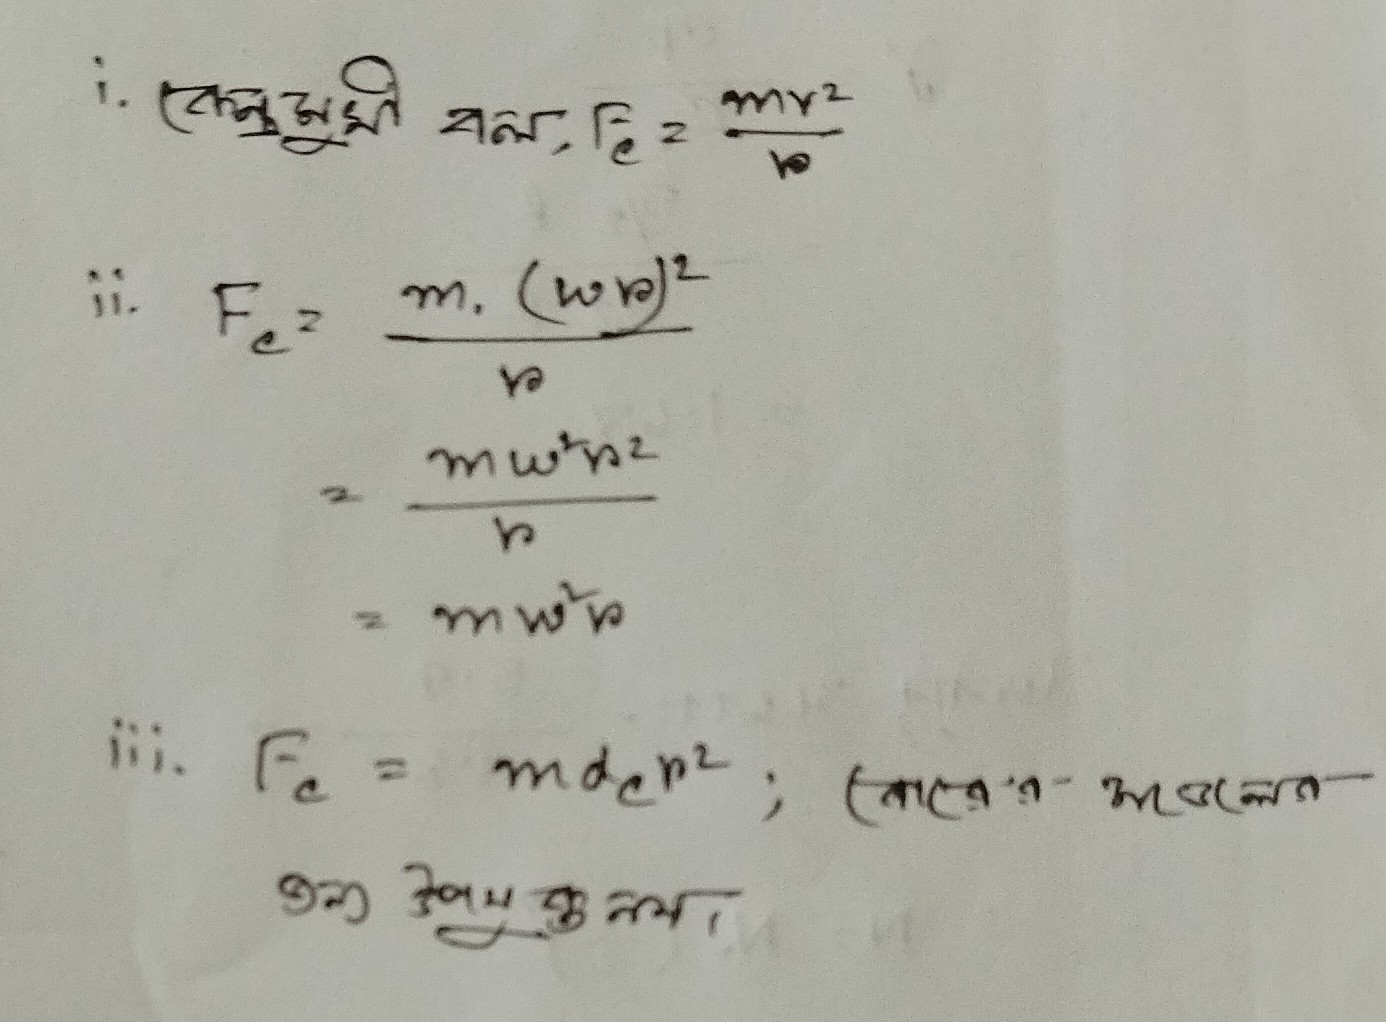 i. কেন্দ্রমুখী বল, Fc = mv²/r
ii. Fc = m. (ωr)²/r
= mω²r²/r
= mω²r
iii. Fc = mαcr² ; বোরের মডেলের
জন্য উপযুক্ত নয়।